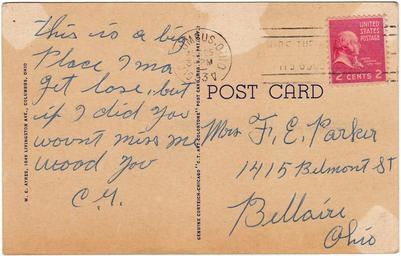 this is a big
Place I ma
get lose, but
if I did you
wount miss me
wood you
C.M.
W. E. AYRES, LIVINGSTON AVE., COLUMBUS, OHIO
GENUINE CURTEICH-CHICAGO "C.T. ART-COLORTONE" POST CARD
POST CARD
UNITED
STATES
POSTAGE
2 CENTS 2
Mrs F. E. Parker
1415 Belmont St
Bellaire
Ohio